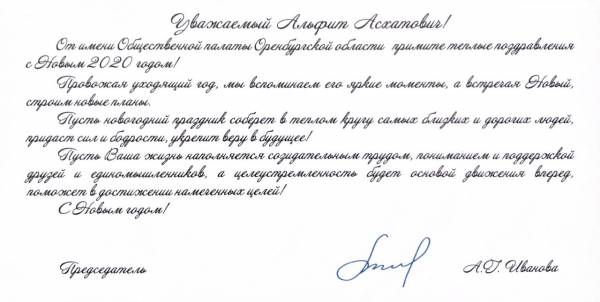 Уважаемый Альфит Асхатович!
От имени Общественной палаты Оренбургской области примите теплые поздравления
с Новым 2020 годом!
Провожая уходящий год, мы вспоминаем его яркие моменты, а встречая Новый,
строим новые планы.
Пусть новогодний праздник соберет в теплом кругу самых близких и дорогих людей,
придаст сил и бодрости, укрепит веру в будущее!
Пусть Ваша жизнь наполняется созидательным трудом, пониманием и поддержкой
друзей и единомышленников, а целеустремленность будет основой движения вперед,
поможет в достижении намеченных целей!
С Новым годом!
Председатель А.Г. Иванова